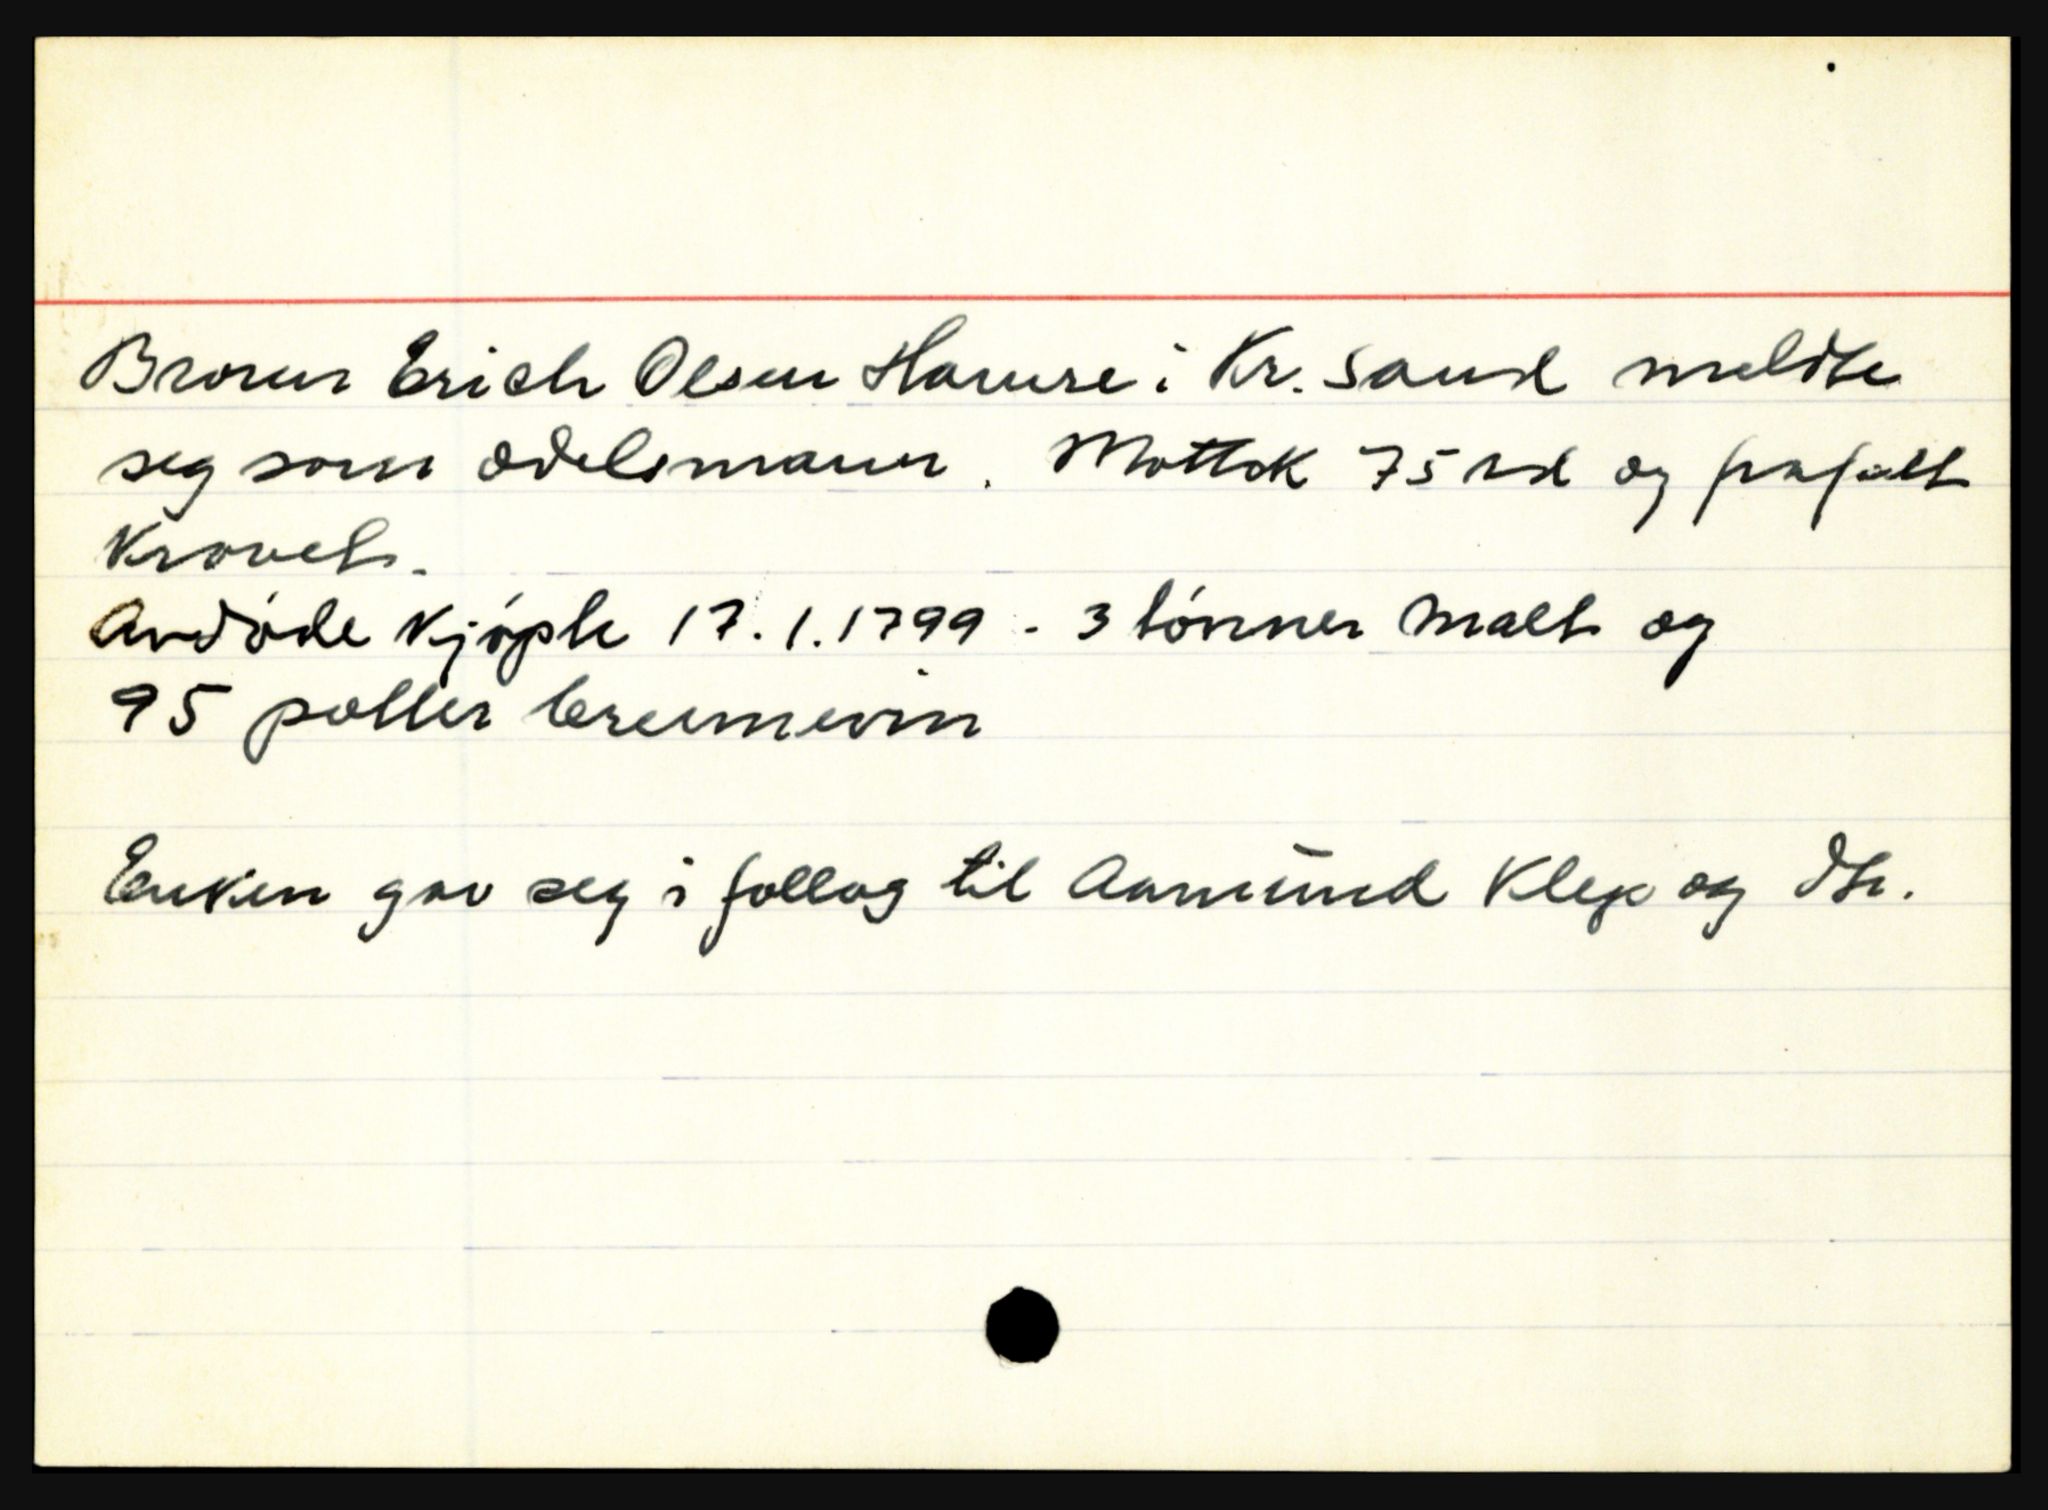 Broren Erich Olsen Hamre i Kr. sand meldte
seg som odelsmann. Mottok 75 rd og frafalt
kravet.
Avdöde kjöpte 17.1.1799 - 3 tönner malt og
95 potter brennevin
Enken gav seg i follog til Aamund Klep og dtr.